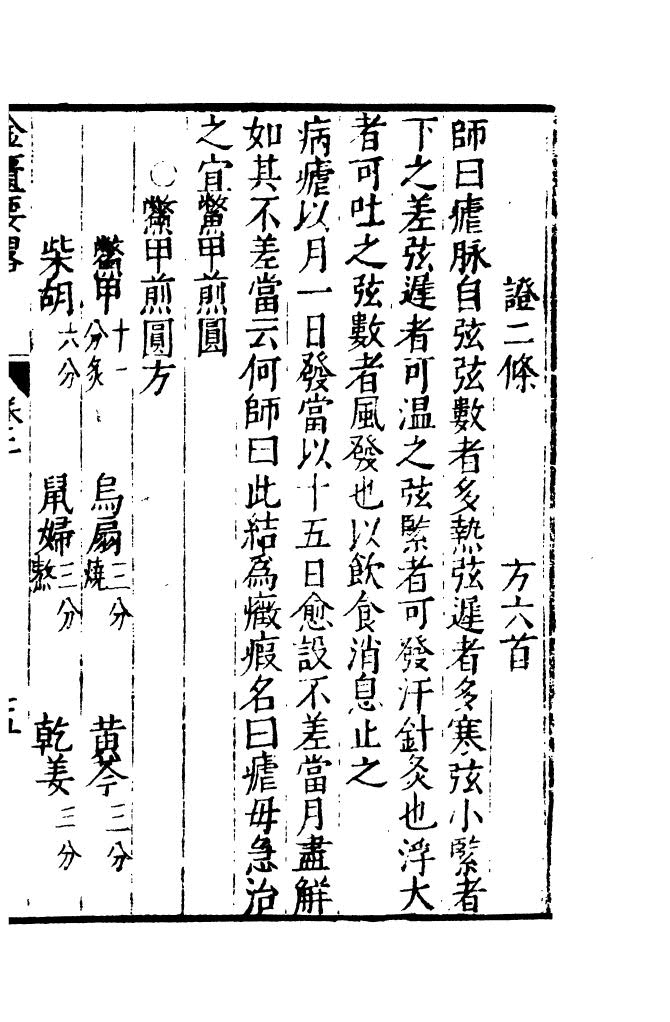 證二條　方六首
師曰瘧脉自弦弦數者多熱弦遲者多寒弦小緊者
下之差弦遲者可温之弦緊者可發汗針灸也浮大
者可吐之弦數者風發也以飲食消息止之
病瘧以月一日發當以十五日愈設不差當月盡解
如其不差當云何師曰此結為癥瘕名曰瘧母急治
之宜鱉甲煎圓
○鱉甲煎圓方
鱉甲十一分炙　烏扇三分燒　黄芩三分
柴胡六分　鼠婦三分熬　乾姜三分
金匱要畧　卷二　五